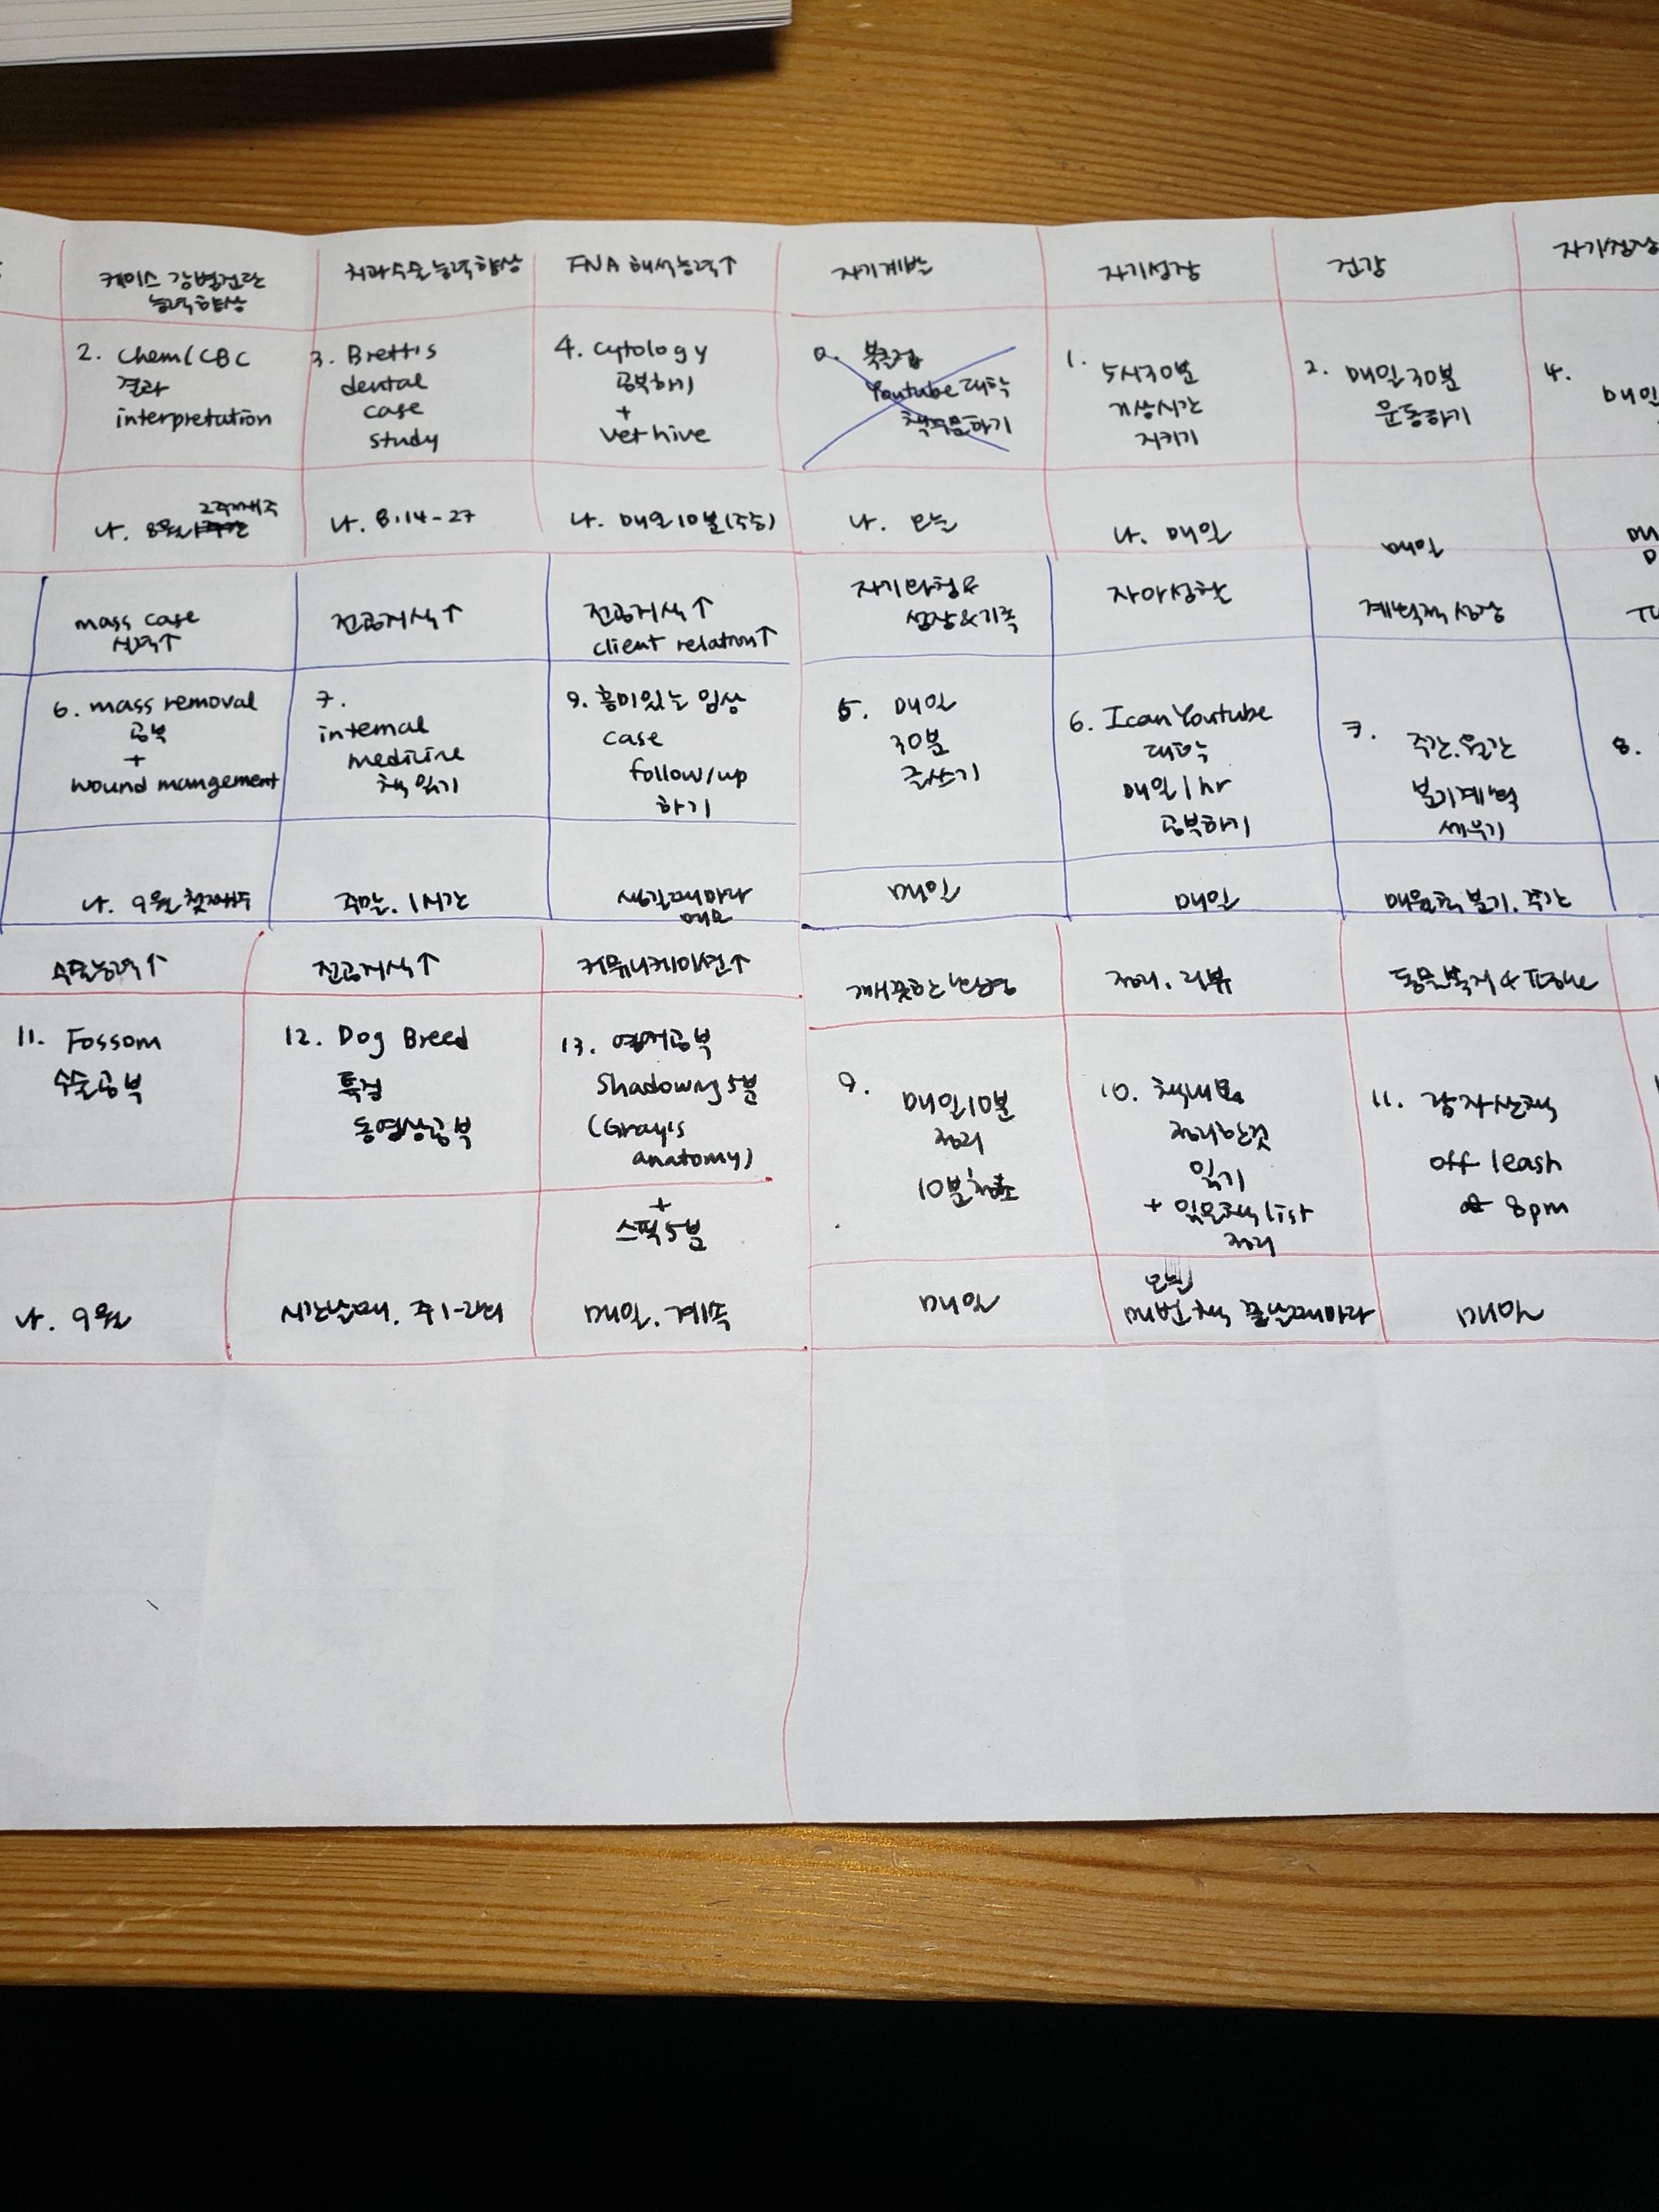 케이스 감별진단
능력향상
치과수술능력향상
FNA 해석능력↑
자기계발
자기성장
건강
자기성장
2. Chem/CBC
결과
interpretation
3. Brett's
dental
case
study
4. cytology
공부하기
+
vet hive
0. 북클럽
Youtube대학
1. 5시30분
기상시간
지키기
2. 매일30분
운동하기
4.
매일
2주째주
나. 8월
나. 8.14-27
나. 매일10분(주중)
나.
나. 매일
매일
mass case
실력↑
전공지식↑
전공지식↑
client relation↑
성장&기록
자아성찰
계획적성장
6. mass removal
공부
+
wound mangement
7.
internal
medicine
책읽기
9. 흥미있는 임상
case
follow/up
하기
5. 매일
30분
글쓰기
6. IcanYoutube
대학
매일1hr
공부하기
7. 주간.월간
분기계획
세우기
8.
나. 9월 첫째주
주말. 1시간
생각날때마다
매일
매일
매월말 분기. 주간
수술능력↑
전공지식↑
커뮤니케이션↑
깨끗한
정리. 리뷰
동물복지&
11. Fossom
수술공부
12. Dog Breed
특징
동영상공부
13. 영어공부
Shadowing 5분
(Gray's
anatomy)
+
스픽5분
9. 매일10분
정리
10분청소
10. 책내용
정리한것
읽기
+ 읽을책list
정리
11. 강자산책
off leash
@ 8pm
나. 9월
시간날때. 주1-2회
매일. 계속
매일
매일